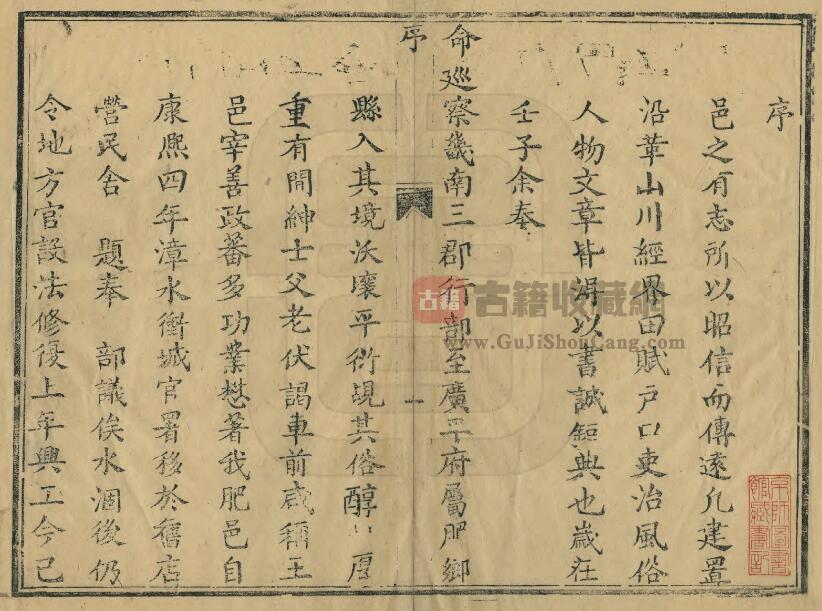 序
邑之有志所以昭信而傳遠凡建置
沿革山川經界田賦戸口吏治風俗
人物文章皆淂以書誠鉅典也歲在
壬子余奉
命廵察畿南三郡行部至廣平府屬肥鄉
序
一
縣入其境沃壤平衍覘其俗醇厚
重有間紳士父老伏謁車前咸稱王
邑宰善政蕃多功業懋著我肥邑自
康熙四年漳水衝城官署移於舊店
營民舍 題奉 部議俟水涸後仍
令地方官設法修復上年興工今已
古籍
古籍收藏網
www.GuJiShouCang.com